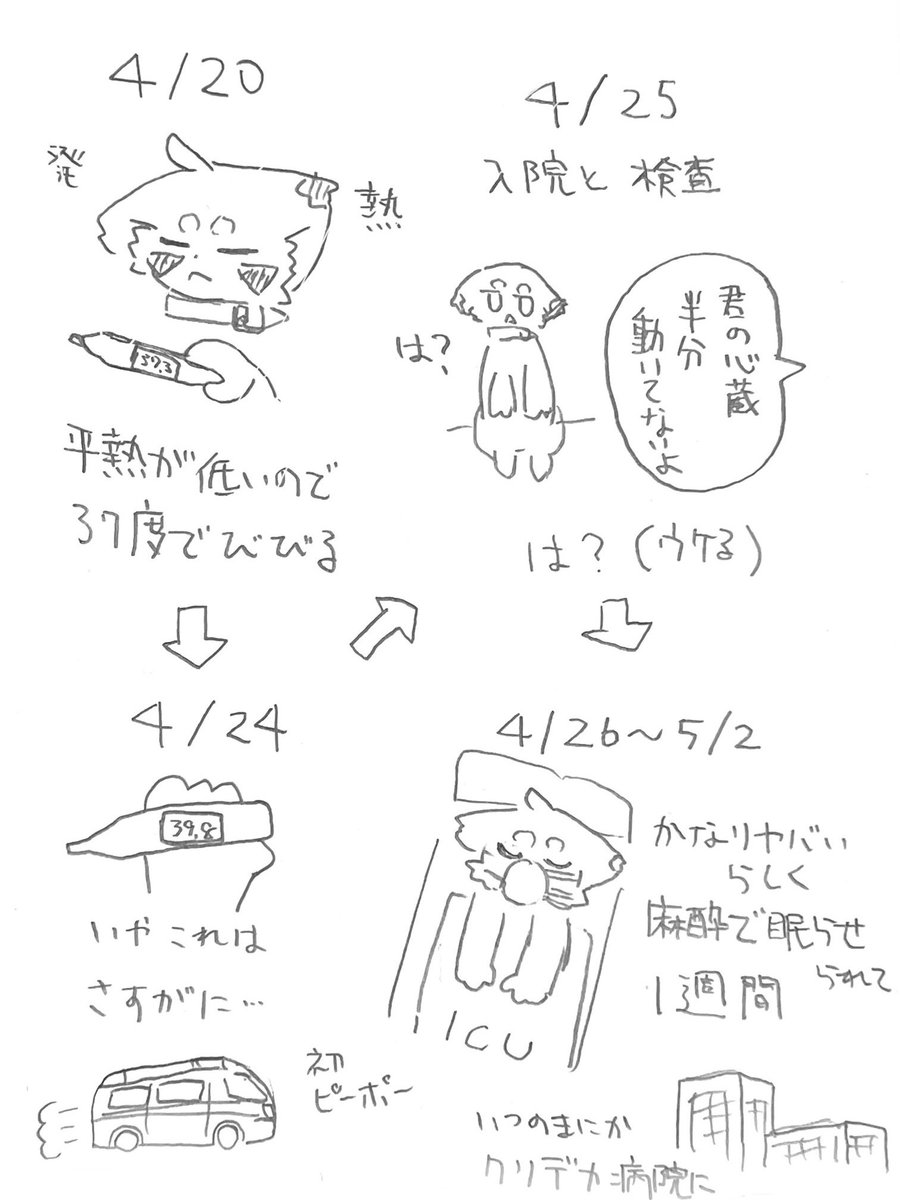 4/20
発
熱
37.3
平熱が低いので
37度でびびる
4/24
39.8
いやこれは
さすがに…
初
ピーポー
4/25
入院と検査
は?
君の心蔵
半分
動いてないよ
は?(ウケる)
4/26〜5/2
かなりヤバい
らしく
麻酔で眠らせ
られて
1週間
ICU
いつのまにか
クソデカ病院に